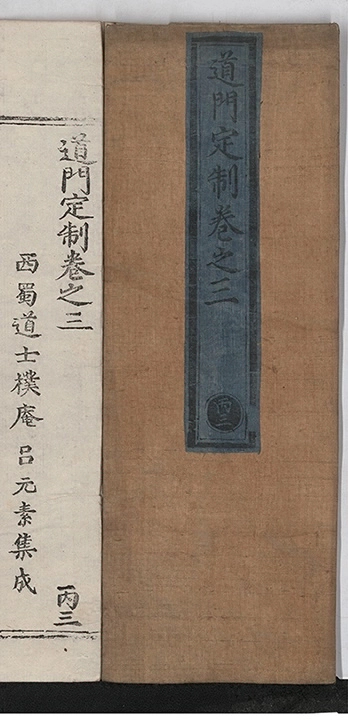 道門定制卷之三
丙三
道門定制卷之三
丙三
西蜀道士樸庵呂元素集成